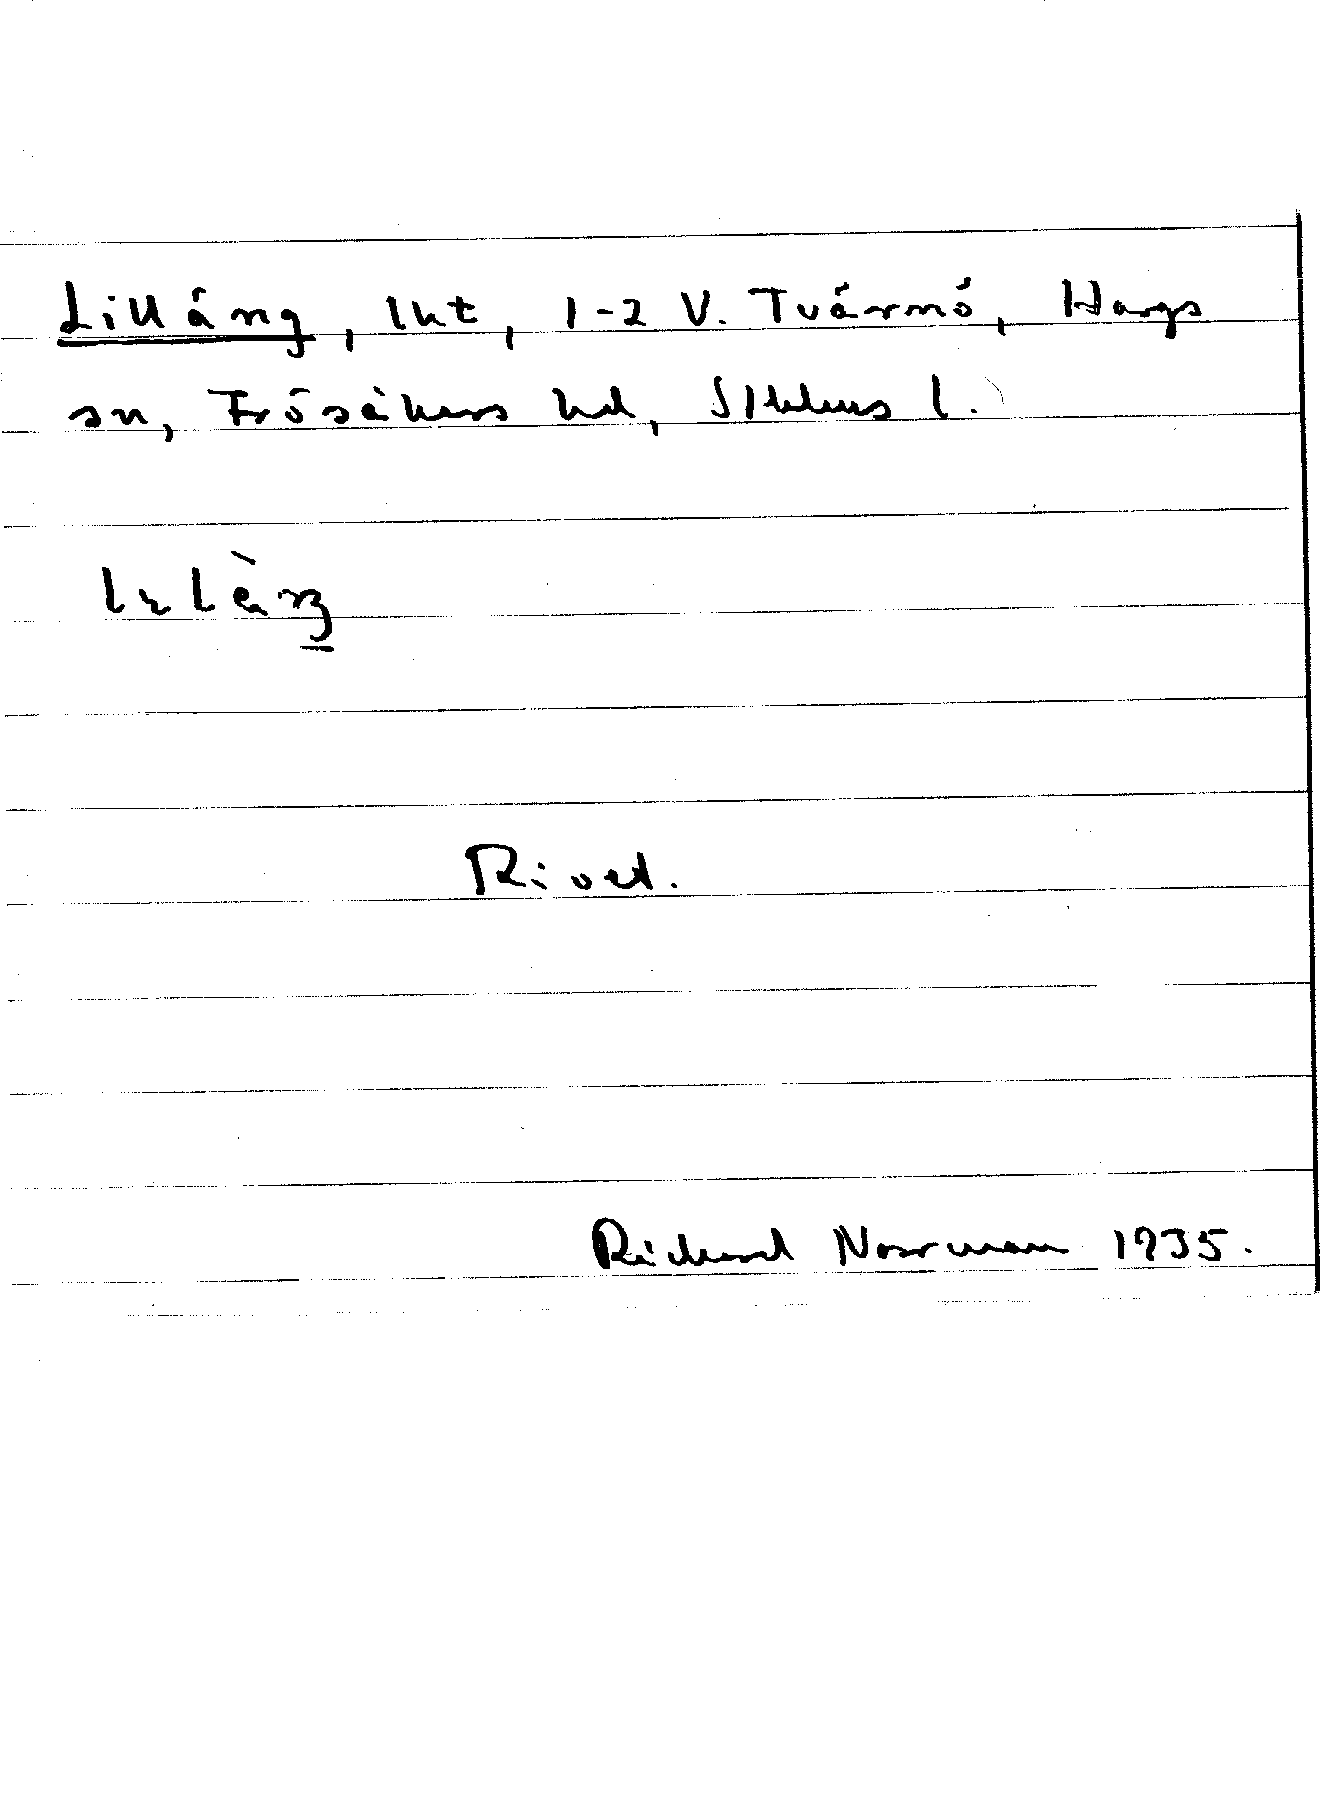 Lilläng, lht, 1-2 V. Tvärnö, Hargs
sn, Frösåkers hd, Sthlms l.
Rivet.
Richard Norrman 1935.